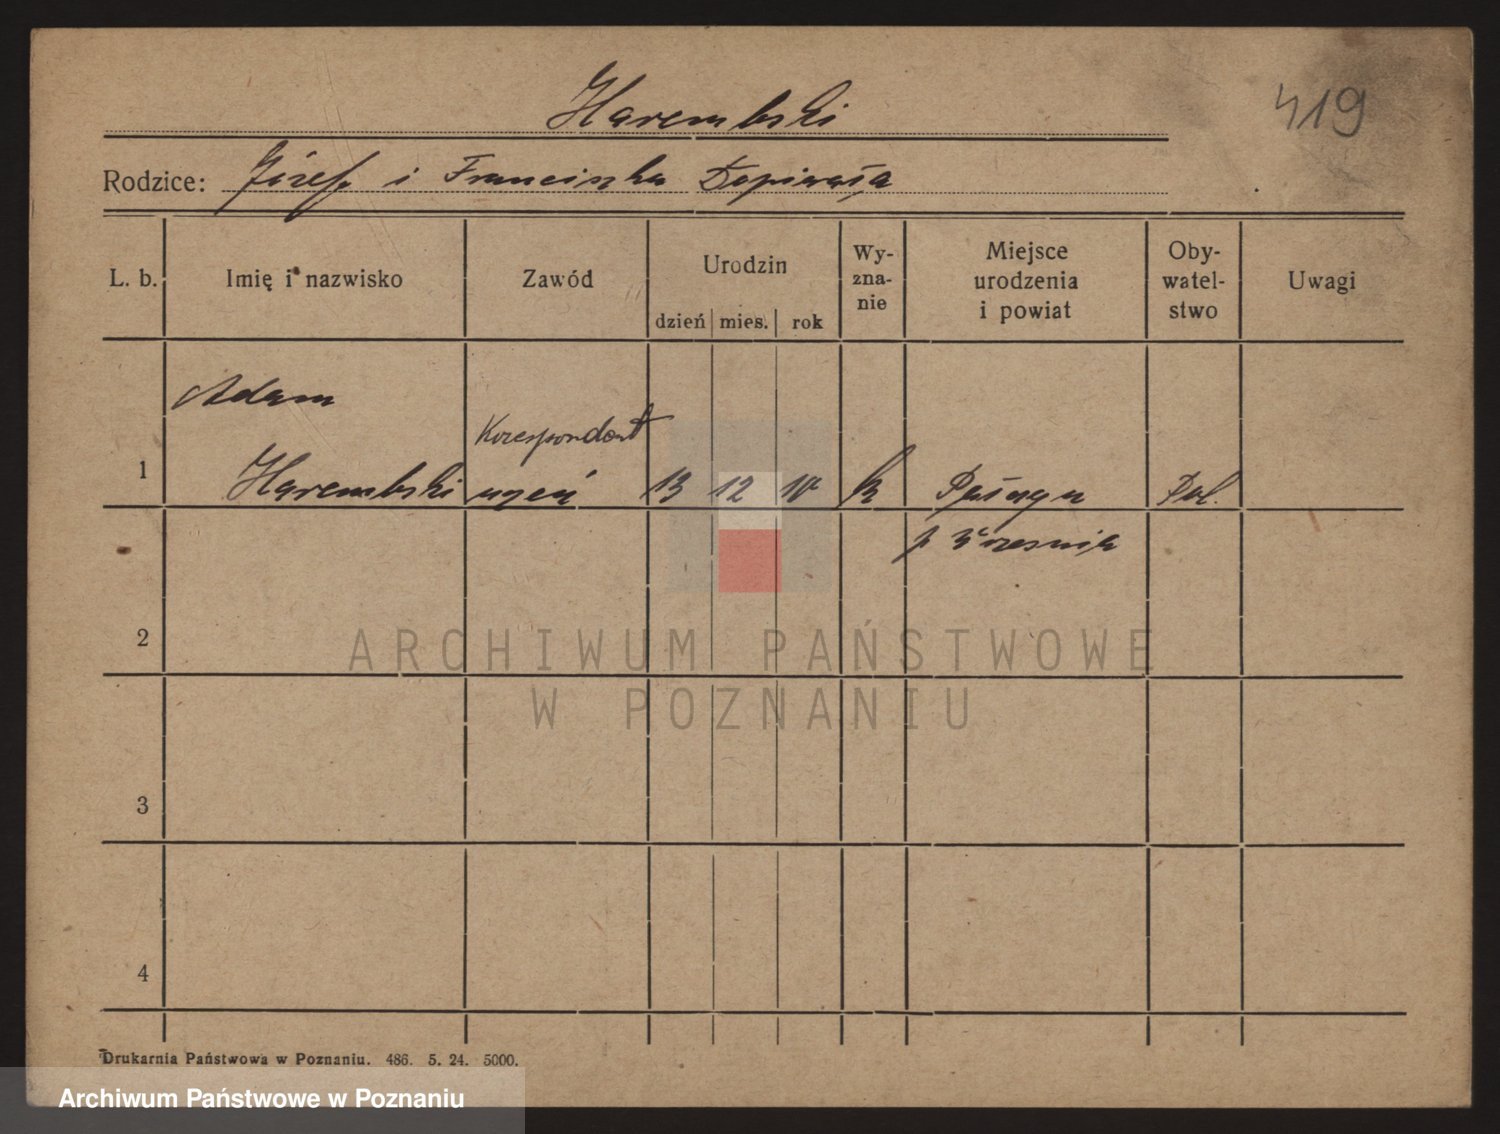 Harembski
419
Rodzice: Józef i Franciszka Dopierała
L. b.
Imię i nazwisko
Zawód
Urodzin
dzień mies. rok
Wy-
zna-
nie
Miejsce
urodzenia
i powiat
Oby-
watel-
stwo
Uwagi
Adam
Korespondent
1 Harembski uczeń 13 12 10 k Pol.
p Września
2
3
4
Drukarnia Państwowa w Poznaniu. 486. 5. 24. 5000.
ARCHIWUM PAŃSTWOWE
W POZNANIU
Archiwum Państwowe w Poznaniu